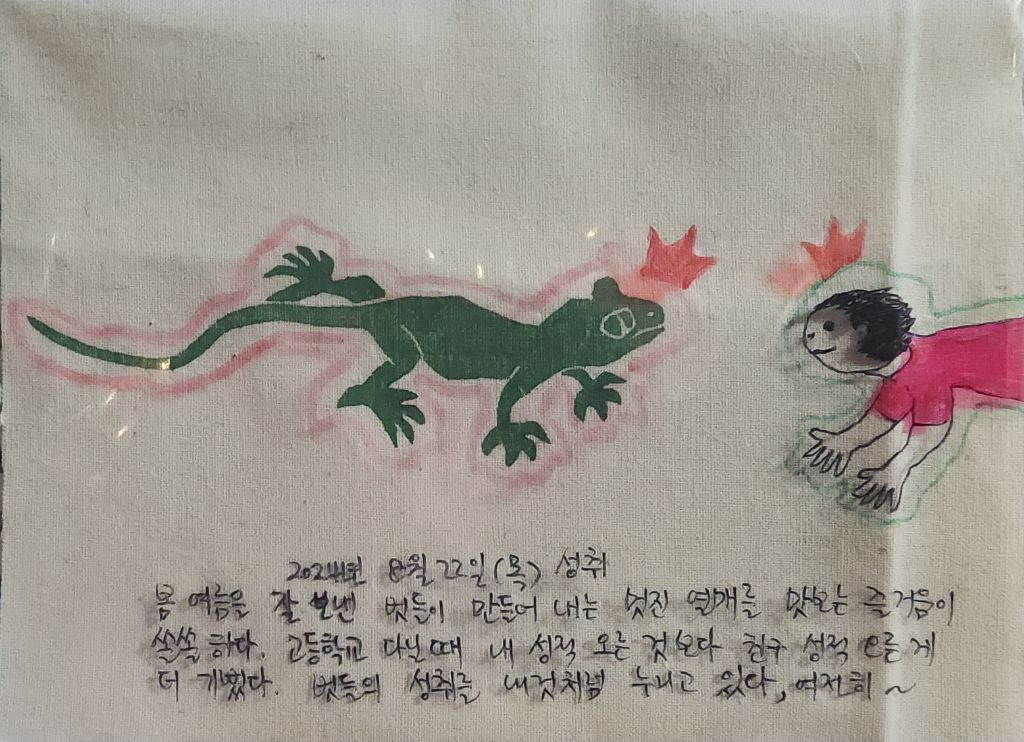 2024년 8월 22일 (목) 성취
봄 여름을 잘 보낸 벗들이 만들어 내는 멋진 열매를 맛보는 즐거움이
쏠쏠하다. 고등학교 다닐때 내 성적 오는 것보다 친구 성적 오를 게
더 기뻤다. 벗들의 성취를 내것처럼 누니고 있다, 여전히 ~